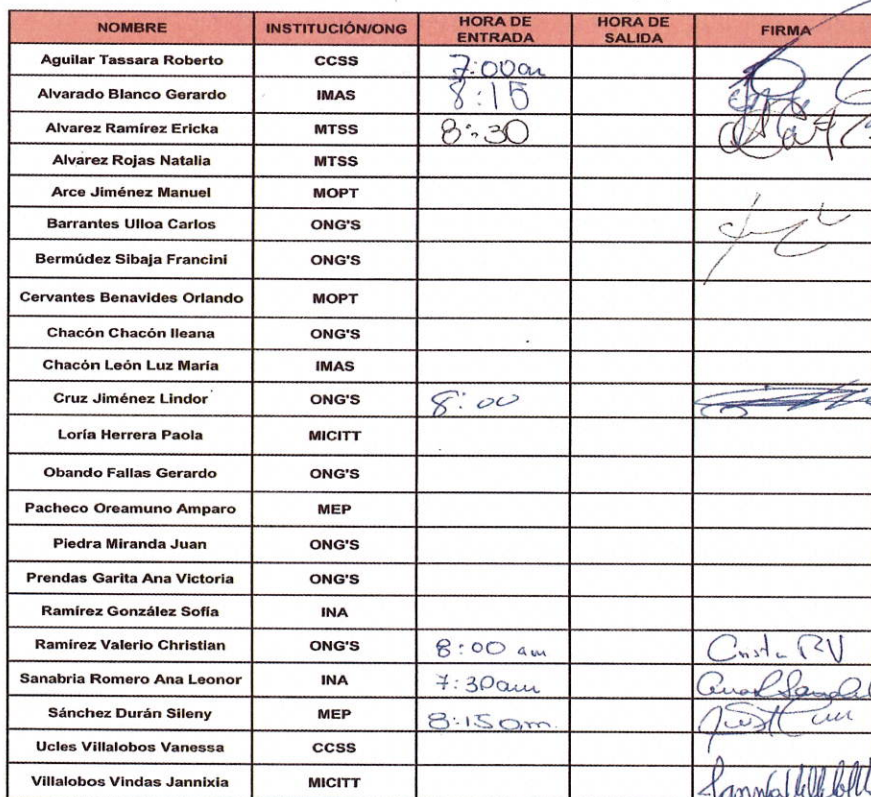 NOMBRE INSTITUCIÓN/ONG HORA DE ENTRADA HORA DE SALIDA FIRMA
Aguilar Tassara Roberto CCSS 7:00am
Alvarado Blanco Gerardo IMAS 8:15
Alvarez Ramírez Ericka MTSS 8:30
Alvarez Rojas Natalia MTSS
Arce Jiménez Manuel MOPT
Barrantes Ulloa Carlos ONG'S
Bermúdez Sibaja Francini ONG'S
Cervantes Benavides Orlando MOPT
Chacón Chacón Ileana ONG'S
Chacón León Luz María IMAS
Cruz Jiménez Lindor ONG'S 8:00
Loría Herrera Paola MICITT
Obando Fallas Gerardo ONG'S
Pacheco Oreamuno Amparo MEP
Piedra Miranda Juan ONG'S
Prendas Garita Ana Victoria ONG'S
Ramírez González Sofía INA
Ramírez Valerio Christian ONG'S 8:00 am
Sanabria Romero Ana Leonor INA 7:30am
Sánchez Durán Sileny MEP 8:15am.
Ucles Villalobos Vanessa CCSS
Villalobos Vindas Jannixia MICITT